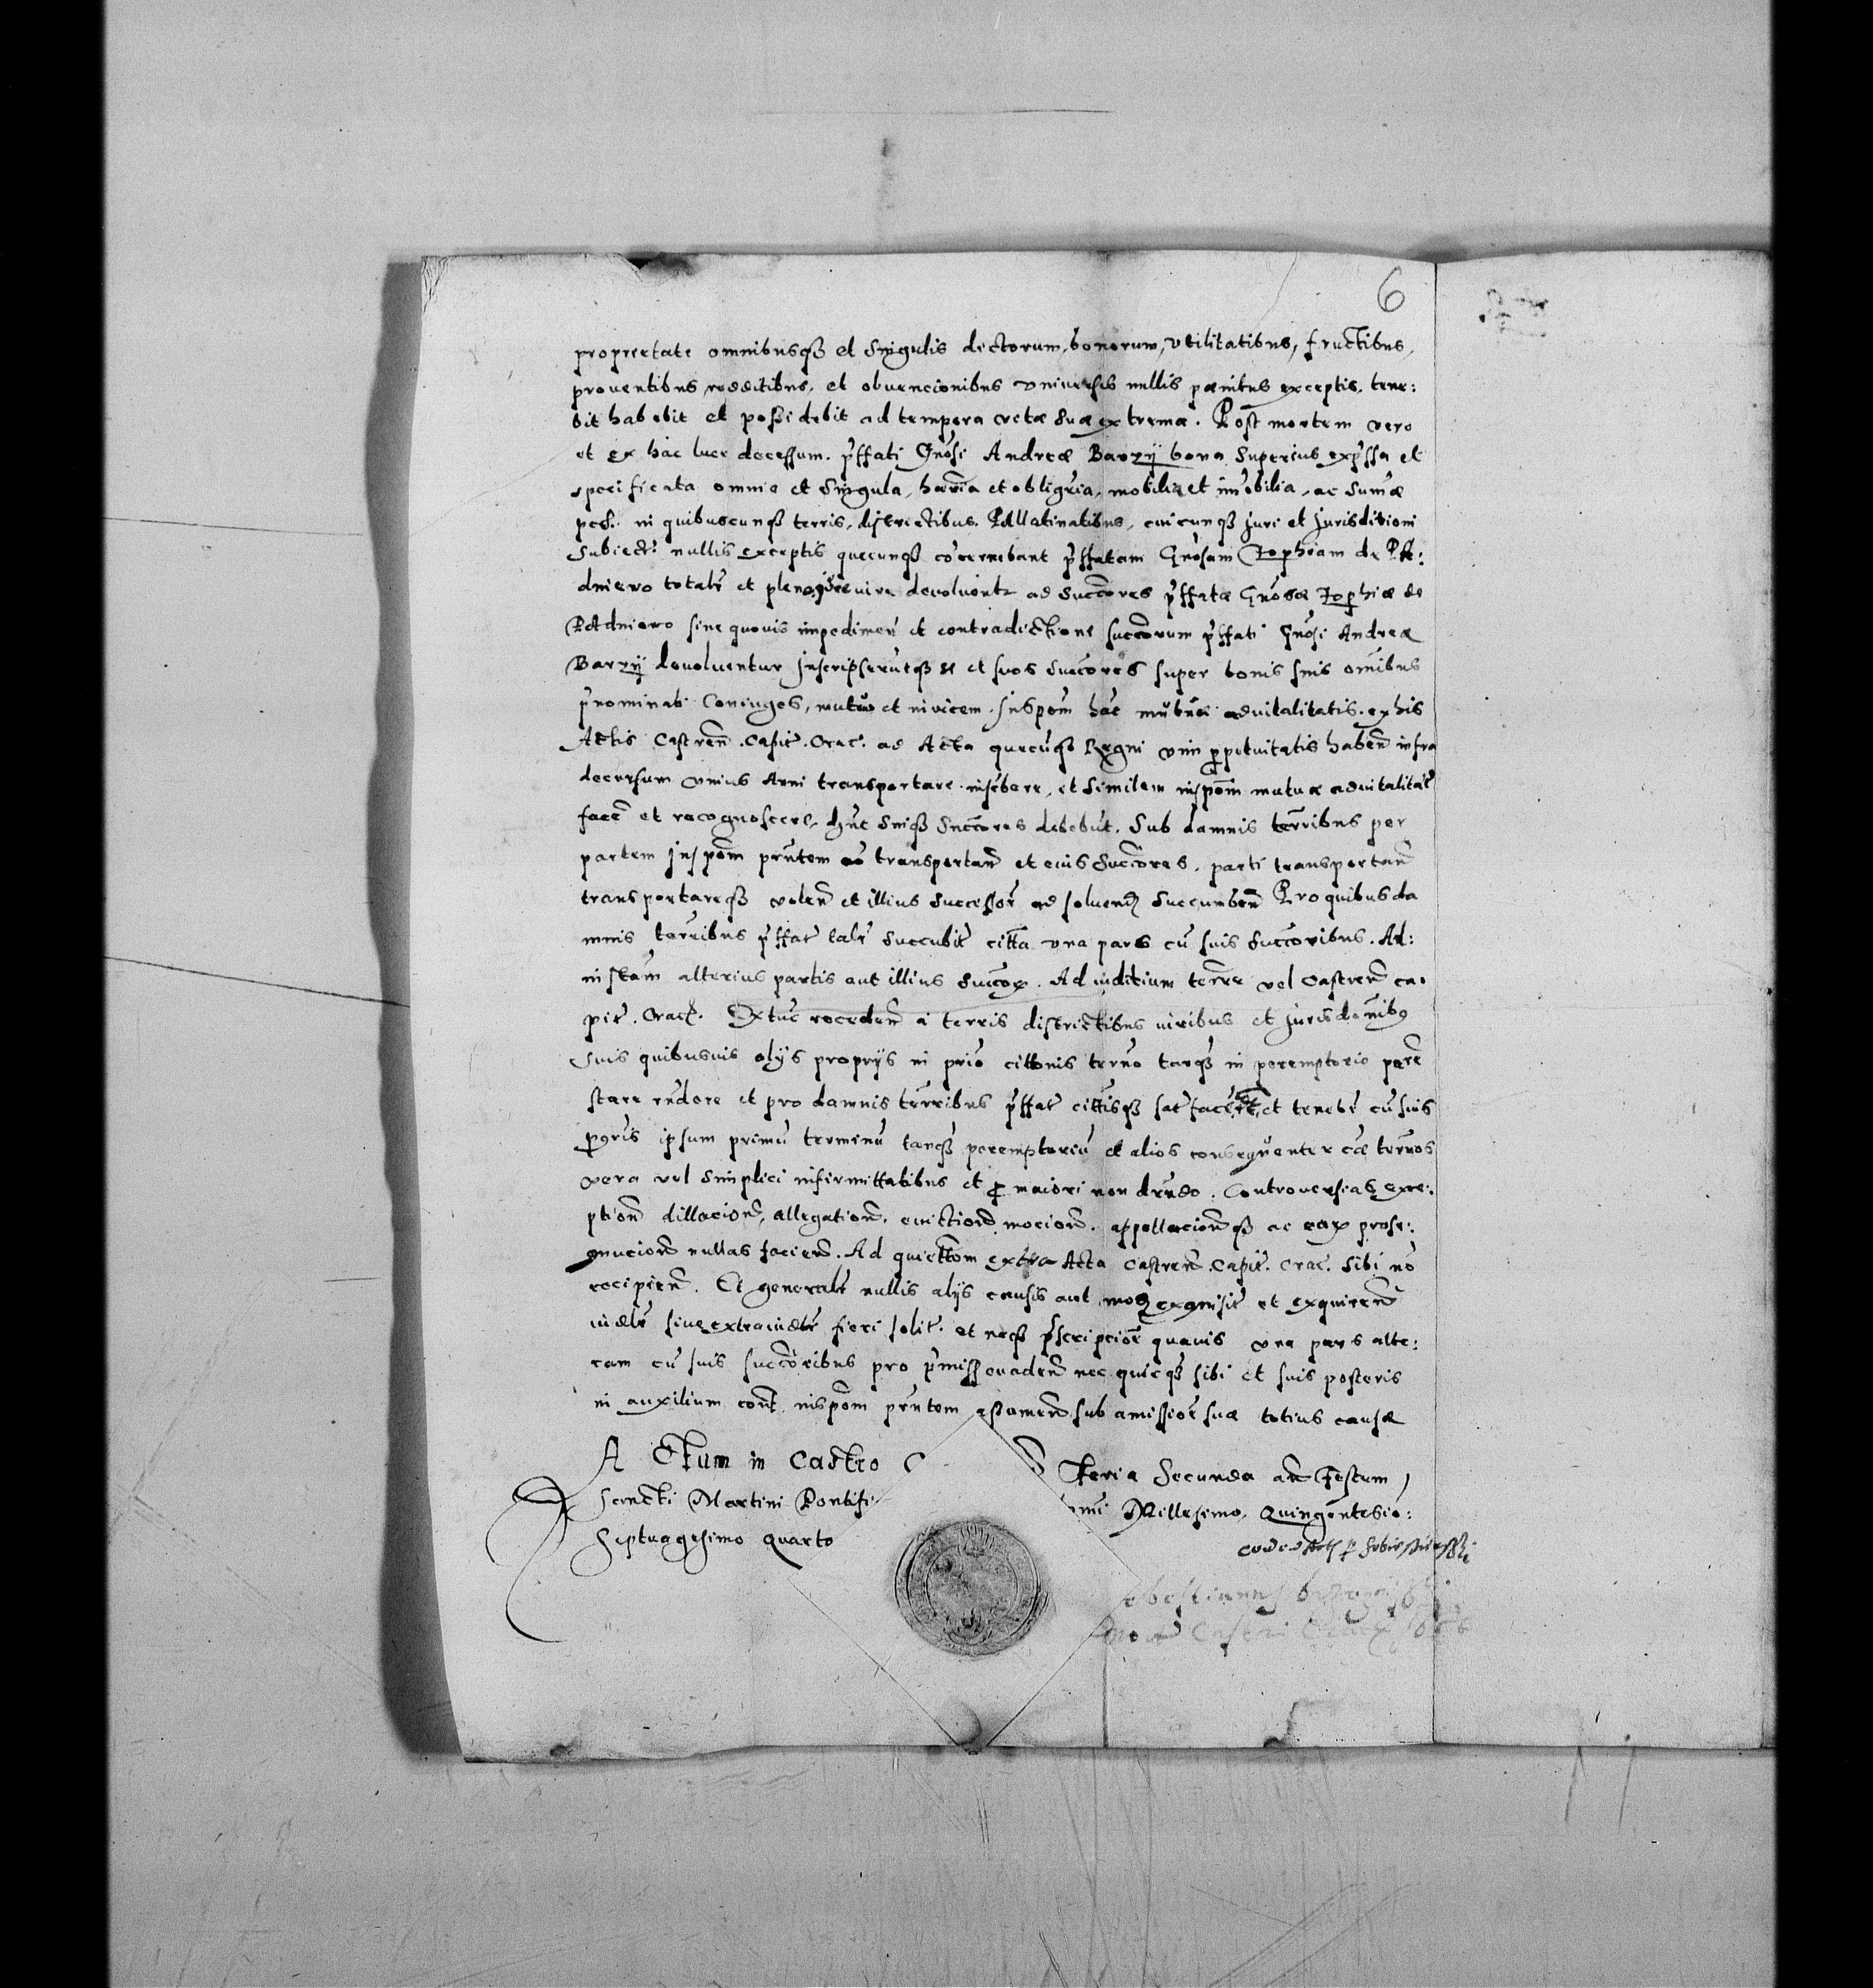 6
proprietate omnibusqз et singulis dictorum, bonorum, vtilitatibus, fructibus,
prouentibus, redditibus, et obuencionibus vniuersis nullis pænitus exceptis, tene:
bit habebit et poßidebit ad tempora vitæ suæ extremæ. Post mortem vero
et ex hac luce decessum. pͬffati Gnͦsi Andreæ Barzij bona superius expͬssa et
specificata omnia et singula, hæria et obligria, mobilia et imͦobilia, ac sumͣæ
pec̃. in quibuscunqз terris, districtibus, Pallatinatibus, cuicunqз juri et jurisditioni
subiectͬ. nullis exceptis quecunqз cõcernebant pͬffatam Gnͦsam Zophiam de
dniewo totalr̃ et pleno devoluentr ad succores pͬffatæ Gnͦsæ Zophiæ de
sine quouis impedimen̄ et contradictione succorum pͬffati Gnͦsi Andreæ
Barzij deuoluentur jnscripserũtqз se et suos succores super bonis suis omĩbus
pͬnominati Coniuges, mutuo et inuicem. Jnspoem̄ hac̃ mutuæ aduitalitatis. ex his
Actis Castren̄. Capit̃. Crac̃. ad Acta quecũqз Regni vim ꝑpetuitatis haben̄ infra
decursum vnius Anni transportare. inscribere, et similem inspoem̄ mutuæ aduitalitat̃
facẽ et recognoscere, hũc suiqз succores debebũt. Sub damnis terrĩbus per
partem jnspoem̄ pñtem transportan̄ et eius succores, parti transportan̄
transportareqз volen̄ et illius successor̃ ad soluend succumben̄ Pro quibus da
mnis terrĩbus pͬffat̃ talr̃ succubit̃ citta vna pars cũ suis succoribus. Ad:
instam̄ alterius partis aut illius Ad iuditium terrẽ vel Castren̄ ca:
pit̃. Crac̃. Extũc receden̄ a terris districtibus iuribus et jurisdonĩbꝯ
suis quibusuis alijs proprijs in prio cittonis ternͦo tanqз in peremptorio parẽ
stare rñdere et pro damnis terrĩbus pͬffat̃ cittisqз satfacere et teneb̃r cũ suis
ipsum primũ terminũ tanqз peremptoriũ et alios consequenter cẽ ternͦos
vera vel simplici infirmittatibus et ꝓ maiori non drñdo. Controuersias, exce:
ption̄ dillacion̄, allegation̄. euiction̄ mocion̄. appellacion̄qз ac eaꝝ prose:
qnucion̄ nullas facien̄. Ad quiettoem̄ extra Acta Castren̄. Capit̃. Crac̃. sibi nõ
recipien̄. Et generalr̃ nullis alijs causis aut mod̃ exquisit̃ et exquiren̄
iudlr̃ siue extraiudlr̃ fieri solit̃. et neqз pͬscripcion̄ quauis vna pars alte:
ram cũ suis succoribus pro pͬmiss euaden̄ nec quicqз sibi et suis posteris
in auxilium cont̃. inspoem̄ pñtem assumen̄ sub amission̄ suæ totius causæ
Actum in Castro C Feria Secunda añ Festum
Sancti Martini Pontifi Millesimo, Quingentesio:
Septuagesimo Quarto